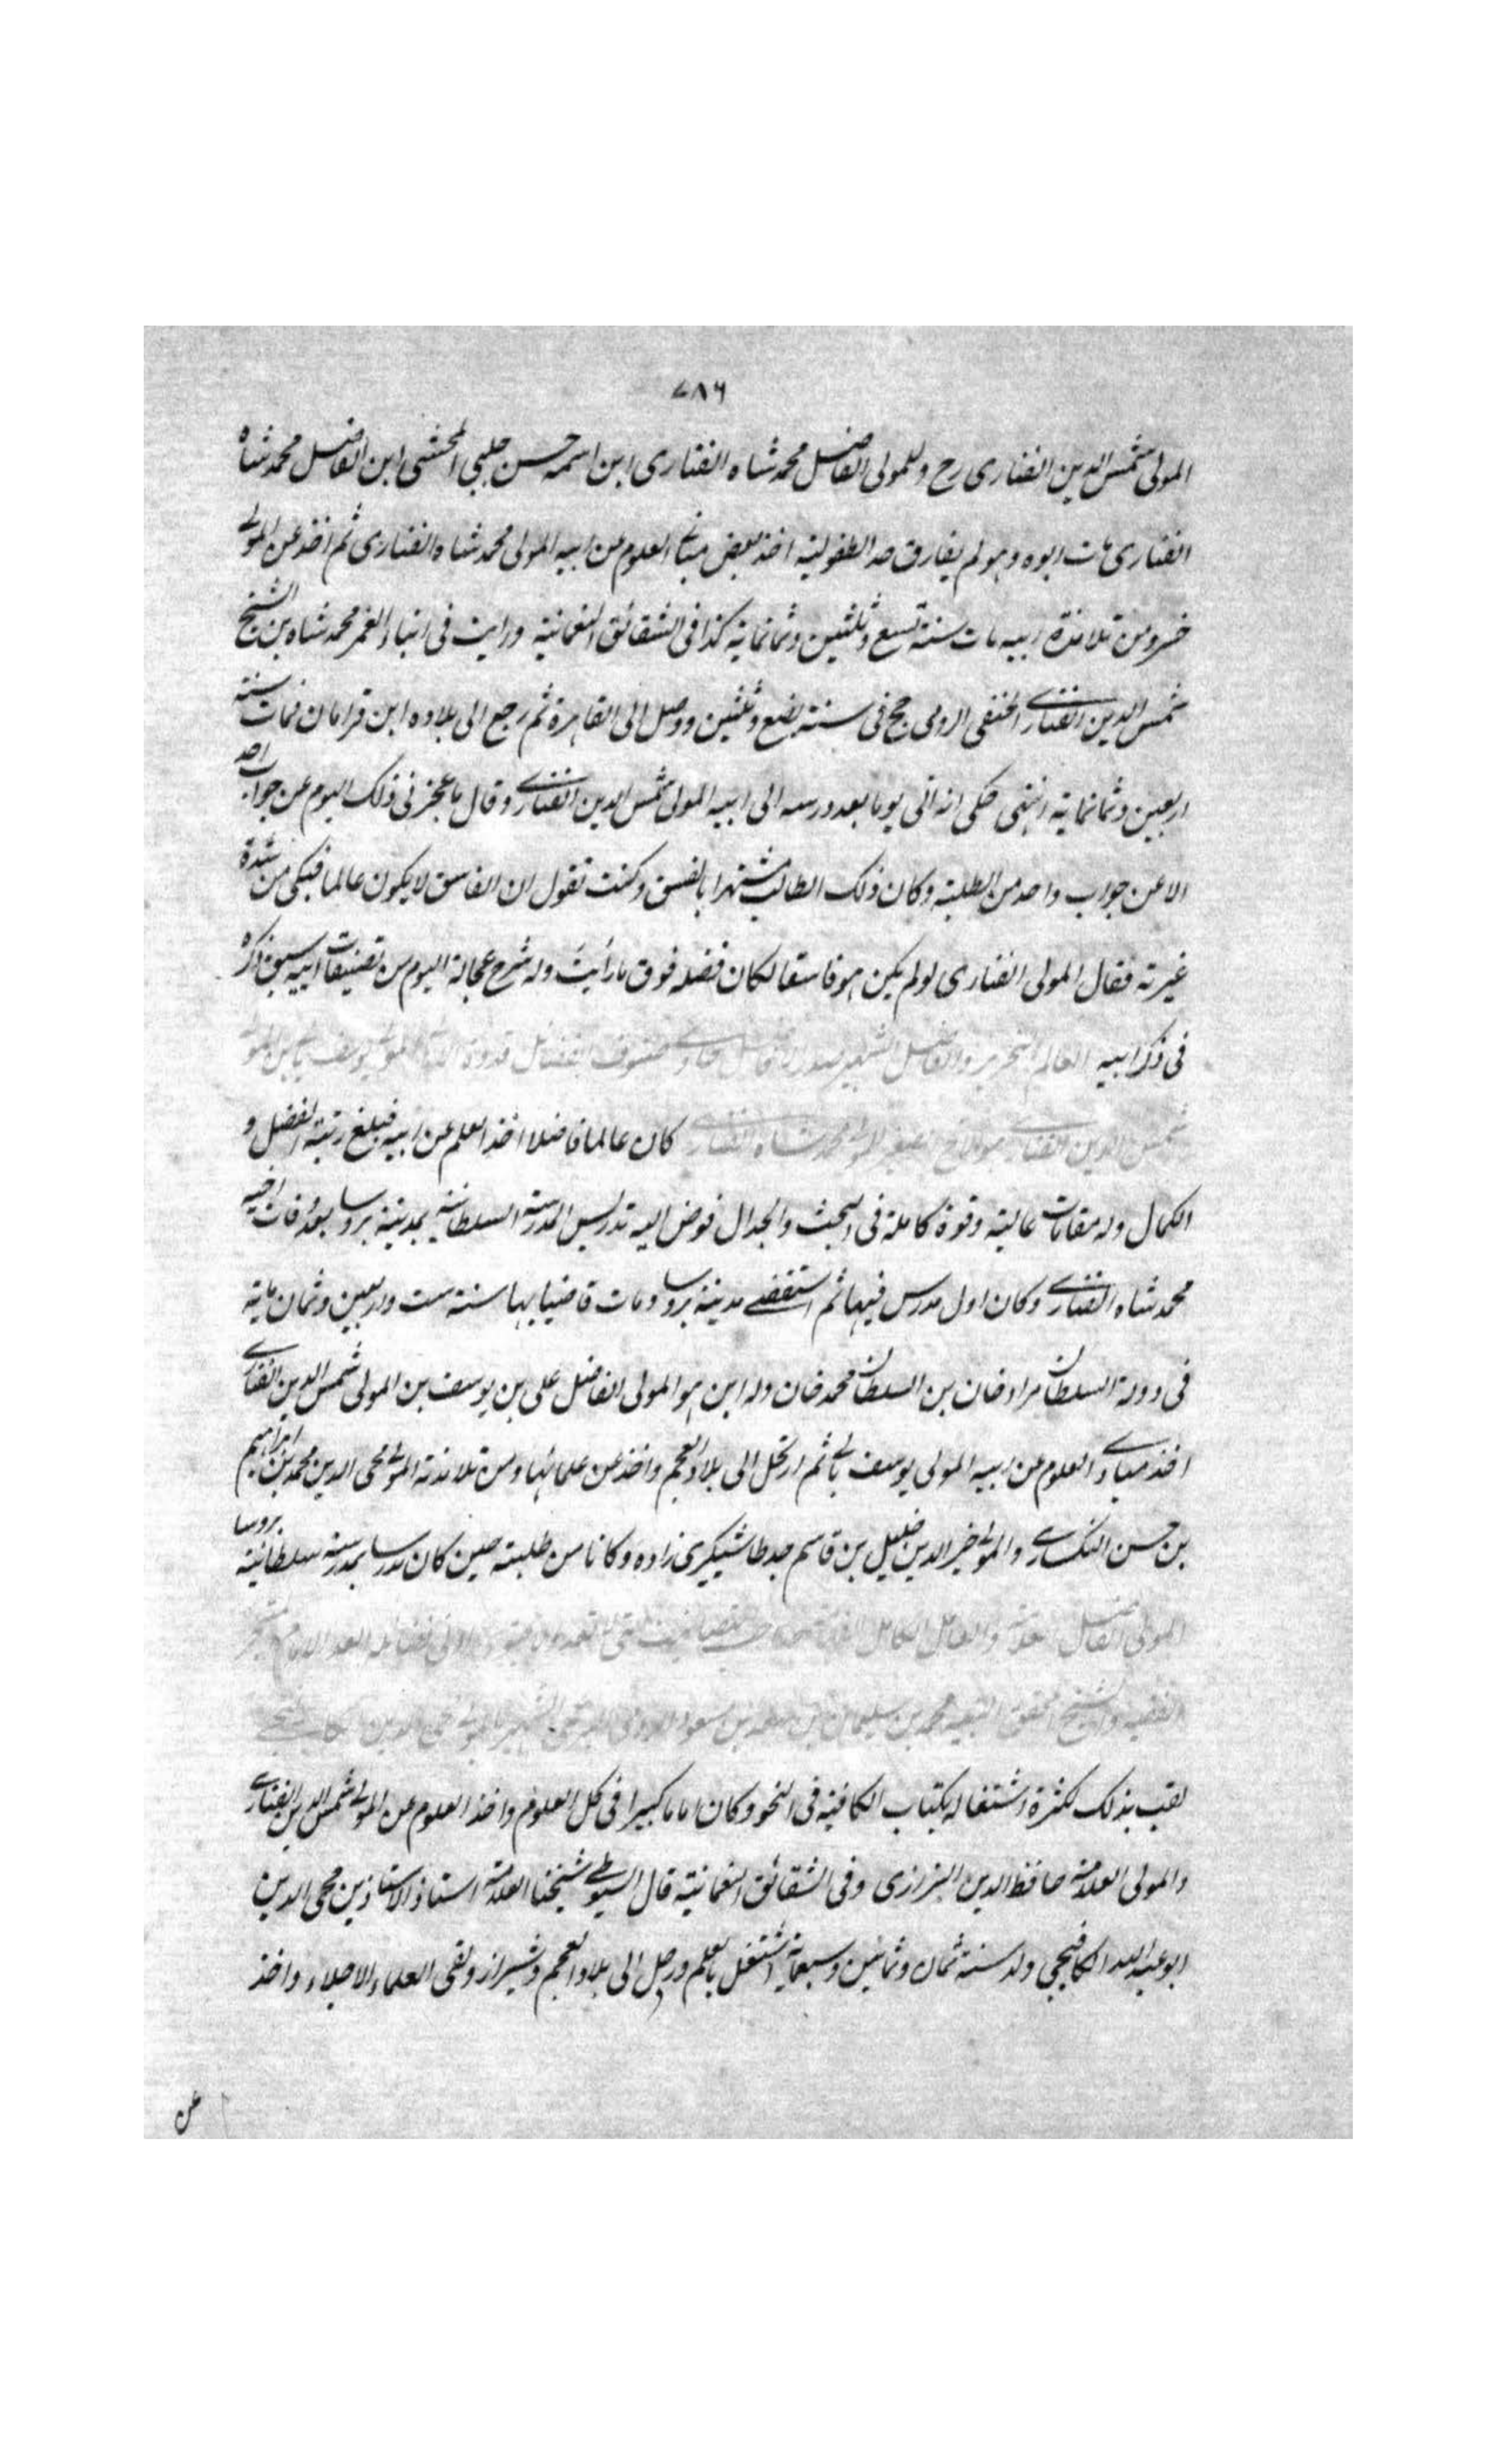 ٧٨٦
المولى شمس الدين الفنارى رح وللمولى الفاضل محمد شاه الفنارى ابن اسمه حسن چلبي المحشى ابن الفاضل محمد شاه
الفنارى مات ابوه وهو لم يفارق حد الطفولية اخذ بعض العلوم من ابيه المولى محمد شاه الفنارى ثم اخذ عن المولى
خسرو من تلامذة ابيه مات سنة تسع وثلثين وثمانماية كذا فى الشقائق النعمانية ورايت فى انباء الغمر محمد شاه بن الشيخ
شمس الدين الفنارى الحنفى الرومى حج فى سنة بضع وثلثين ووصل الى القاهرة ثم رجع الى بلاده ابن قرامان فمات سنة
اربعين وثمانماية انتهى حكى انه اتى يوما بعد درسه الى ابيه المولى شمس الدين الفنارى وقال ما عجزنى ذلك اليوم عن جواب احد
الا عن جواب واحد من الطلبة وكان ذلك الطالب مشتهرا بالفسق وكنت تقول ان الفاسق لا يكون عالما فبكى من شدة
غيرته فقال المولى الفنارى لو لم يكن هو فاسقا لكان فضله فوق ما رأيت وله شرح عجالة اليوم من تصنيفات ابيه سبق ذكره
فى ذكر ابيه العالم النحرير والفاضل الشهير صدر الافاضل حاوى صنوف الفضائل قدوة المولى يوسف بالى بن المولى
شمس الدين الفنارى هو الاخ الصغير للمولى محمد شاه الفنارى كان عالما فاضلا اخذ العلم عن ابيه فبلغ رتبة الفضل و
الكمال وله مقامات عالية وقوة كاملة فى البحث والجدال فوض اليه تدريس المدرسة السلطانية بمدينة بروسا بعد وفات اخيه
محمد شاه الفنارى وكان اول مدرس فيها ثم استقضى مدينة بروسا ومات قاضيا بها سنة ست واربعين وثمان ماية
فى دولة السلطان مراد خان بن السلطان محمد خان وله ابن هو المولى الفاضل على بن يوسف بن المولى شمس الدين الفنارى
اخذ مبادى العلوم من ابيه المولى يوسف بالى ثم ارتحل الى بلاد العجم واخذ عن علمائها ومن تلامذته المولى محى الدين محمد بن ابراهيم
بن حسن النكسارى والمولى خير الدين خليل بن قاسم جد طاشكبرى زاده وكانا من طلبته حين كان مدرسا بمدرسة سلطانية بروسا
المولى الفاضل العلامة والعامل الكامل الفهامة صاحب التصانيف
الفقيه والشيخ المحقق النبيه محمد بن سليمان بن سعد بن مسعود الرومى البرعمى الشهير بالمولى محى الدين الكافيجى
لقب بذلك لكثرة اشتغاله بكتاب الكافية فى النحو وكان اماما كبيرا فى كل العلوم واخذ العلوم عن المولى شمس الدين الفنارى
والمولى العلامة حافظ الدين البزازى وفى الشقائق النعمانية قال السيوطى شيخنا العلامة استاذ الاستاذين محى الدين
ابو عبد الله الكافيجى ولد سنة ثمان وثمانين وسبعماية اشتغل بالعلم ورحل الى بلاد العجم وشيراز ولقى العلماء الاجلاء واخذ
عن